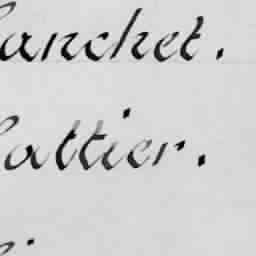 anchet.
attier.